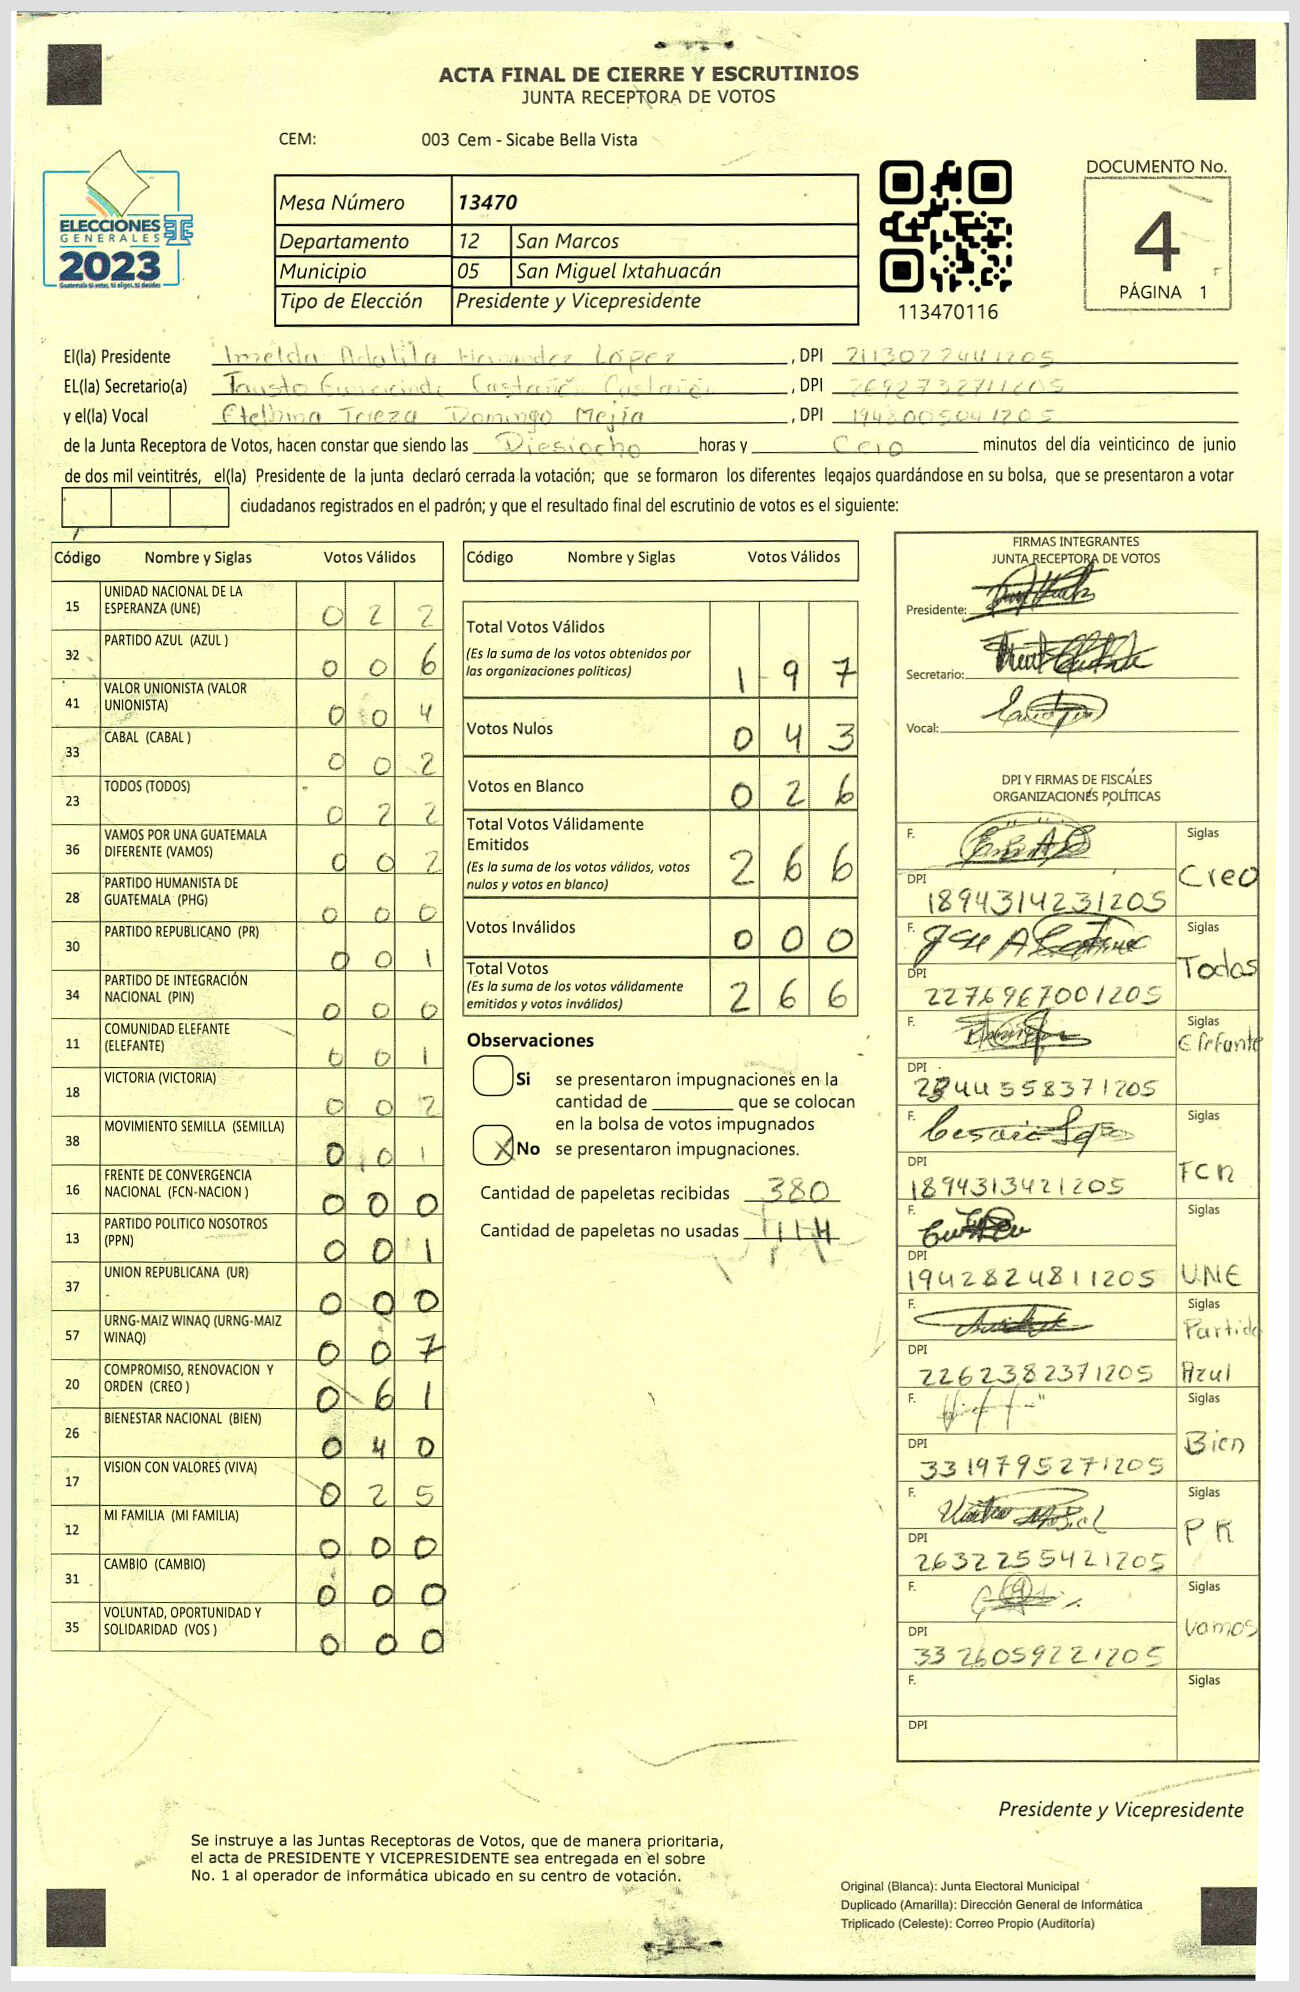 ACTA FINAL DE CIERRE Y ESCRUTINIOS
JUNTA RECEPTORA DE VOTOS
CEM: 003 Cem - Sicabe Bella Vista
ELECCIONES
GENERALES
2023
Guatemala tú votas, tú eliges, tú decides
Mesa Número 13470
Departamento 12 San Marcos
Municipio 05 San Miguel Ixtahuacán
Tipo de Elección Presidente y Vicepresidente
113470116
DOCUMENTO No.
4
PÁGINA 1
El(la) Presidente Imelda Adalila Hernandez López , DPI 2113022441205
EL(la) Secretario(a) Fausto Castañón Castañón , DPI 2692732711205
y el(la) Vocal Etelbina Tereza Domingo Mejía , DPI 1948005041205
de la Junta Receptora de Votos, hacen constar que siendo las Diesiocho horas y Cero minutos del día veinticinco de junio
de dos mil veintitrés, el(la) Presidente de la junta declaró cerrada la votación; que se formaron los diferentes legajos guardándose en su bolsa, que se presentaron a votar
ciudadanos registrados en el padrón; y que el resultado final del escrutinio de votos es el siguiente:
Código Nombre y Siglas Votos Válidos
15 UNIDAD NACIONAL DE LA ESPERANZA (UNE) 0 2 2
32 PARTIDO AZUL (AZUL ) 0 0 6
41 VALOR UNIONISTA (VALOR UNIONISTA) 0 0 4
33 CABAL (CABAL ) 0 0 2
23 TODOS (TODOS) 0 2 2
36 VAMOS POR UNA GUATEMALA DIFERENTE (VAMOS) 0 0 2
28 PARTIDO HUMANISTA DE GUATEMALA (PHG) 0 0 0
30 PARTIDO REPUBLICANO (PR) 0 0 1
34 PARTIDO DE INTEGRACIÓN NACIONAL (PIN) 0 0 0
11 COMUNIDAD ELEFANTE (ELEFANTE) 0 0 1
18 VICTORIA (VICTORIA) 0 0 2
38 MOVIMIENTO SEMILLA (SEMILLA) 0 0 1
16 FRENTE DE CONVERGENCIA NACIONAL (FCN-NACION ) 0 0 0
13 PARTIDO POLITICO NOSOTROS (PPN) 0 0 1
37 UNION REPUBLICANA (UR) 0 0 0
57 URNG-MAIZ WINAQ (URNG-MAIZ WINAQ) 0 0 7
20 COMPROMISO, RENOVACION Y ORDEN (CREO ) 0 6 1
26 BIENESTAR NACIONAL (BIEN) 0 4 0
17 VISION CON VALORES (VIVA) 0 2 5
12 MI FAMILIA (MI FAMILIA) 0 0 0
31 CAMBIO (CAMBIO) 0 0 0
35 VOLUNTAD, OPORTUNIDAD Y SOLIDARIDAD (VOS ) 0 0 0
Código Nombre y Siglas Votos Válidos
Total Votos Válidos
(Es la suma de los votos obtenidos por
las organizaciones políticas) 1 9 7
Votos Nulos 0 4 3
Votos en Blanco 0 2 6
Total Votos Válidamente
Emitidos
(Es la suma de los votos válidos, votos
nulos y votos en blanco) 2 6 6
Votos Inválidos 0 0 0
Total Votos
(Es la suma de los votos válidamente
emitidos y votos inválidos) 2 6 6
Observaciones
Si se presentaron impugnaciones en la
cantidad de ________ que se colocan
en la bolsa de votos impugnados
X No se presentaron impugnaciones.
Cantidad de papeletas recibidas 380
Cantidad de papeletas no usadas 114
FIRMAS INTEGRANTES
JUNTA RECEPTORA DE VOTOS
Presidente:
Secretario:
Vocal:
DPI Y FIRMAS DE FISCALES
ORGANIZACIONES POLÍTICAS
F. Siglas
Creo
DPI 1894314231205
F. Siglas
Todos
DPI 2276967001205
F. Siglas
Elefante
DPI 2344558371205
F. Siglas
FCN
DPI 1894313421205
F. Siglas
UNE
DPI 1942824811205
F. Siglas
Partido
Azul
DPI 2262382371205
F. Siglas
Bien
DPI 3319795271205
F. Siglas
PR
DPI 2632255421205
F. Siglas
Vamos
DPI 3326059221205
F. Siglas
DPI
Presidente y Vicepresidente
Se instruye a las Juntas Receptoras de Votos, que de manera prioritaria,
el acta de PRESIDENTE Y VICEPRESIDENTE sea entregada en el sobre
No. 1 al operador de informática ubicado en su centro de votación.
Original (Blanca): Junta Electoral Municipal
Duplicado (Amarilla): Dirección General de Informática
Triplicado (Celeste): Correo Propio (Auditoría)